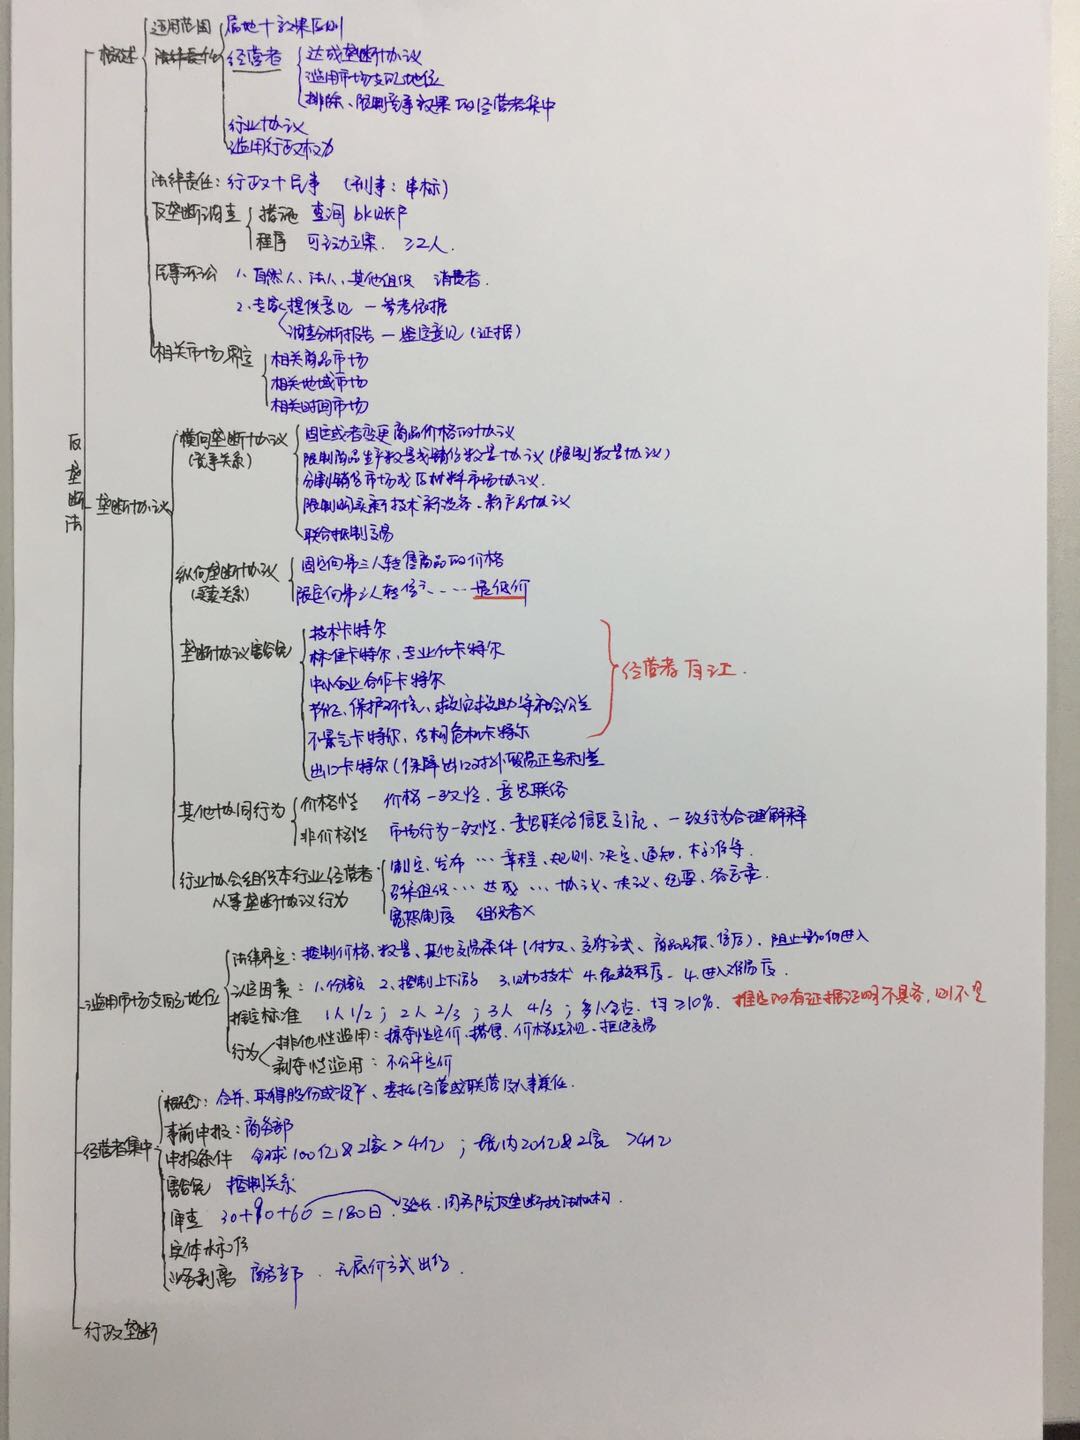 反垄断法
概述
适用范围 属地+效果原则
经营者 达成垄断协议
滥用市场支配地位
排除、限制竞争效果的经营者集中
行业协议
滥用行政权力
法律责任：行政+民事 (刑事：串标)
反垄断调查 措施 查询bk账户
程序 可主动立案. ≥2人.
民事诉讼 1、自然人、法人、其他组织 消费者.
2、专家 提供意见 — 参考依据
调查分析报告 — 鉴定意见 (证据)
相关市场界定 相关商品市场
相关地域市场
相关时间市场
垄断协议
横向垄断协议 固定或者变更商品价格的协议
(竞争关系) 限制商品生产数量或销售数量协议 (限制数量协议)
分割销售市场或原材料市场协议.
限制购买新技术新设备、新产品协议
联合抵制交易
纵向垄断协议 固定向第三人转售商品的价格
(买卖关系) 限定向第三人转售 …… 最低价
垄断协议豁免 技术卡特尔
标准卡特尔、专业化卡特尔
中小企业合作卡特尔
节能、保护环境、救灾救助等社会公益
不景气卡特尔、结构危机卡特尔
出口卡特尔 (保障出口对外贸易正当利益
经营者自证.
其他协同行为 价格性 价格一致性、意思联络
非价格性 市场行为一致性、意思联络信息交流、一致行为合理解释
行业协会组织本行业经营者 制定、发布 … 章程、规则、决定、通知、标准等.
从事垄断协议行为 召集组织 … 达成 … 协议、决议、纪要、备忘录.
宽恕制度 组织者×
滥用市场支配地位
法律界定：控制价格、数量、其他交易条件 (付款、交付方式、商品品质、售后)、阻止影响进入
认定因素：1、份额 2、控制上下游 3、财力技术 4、依赖程度 - 4、进入难易度.
推定标准 1人1/2；2人2/3；3人4/3；多人合占、均≥10%. 推定的有证据证明不具备,则不是
行为 排他性滥用：掠夺性定价、搭售、价格歧视、拒绝交易
剥夺性滥用：不公平定价
经营者集中
概念：合并、取得股份或资产、委托经营或联营及人事兼任.
事前申报：商务部
申报条件 全球100亿&2家>4亿；境内20亿&2家 >4亿
豁免 控制关系
审查 30+90+60=180日. 延长、国务院反垄断执法机构.
实体标准
业务剥离 商务部. 无底价方式出售.
行政垄断